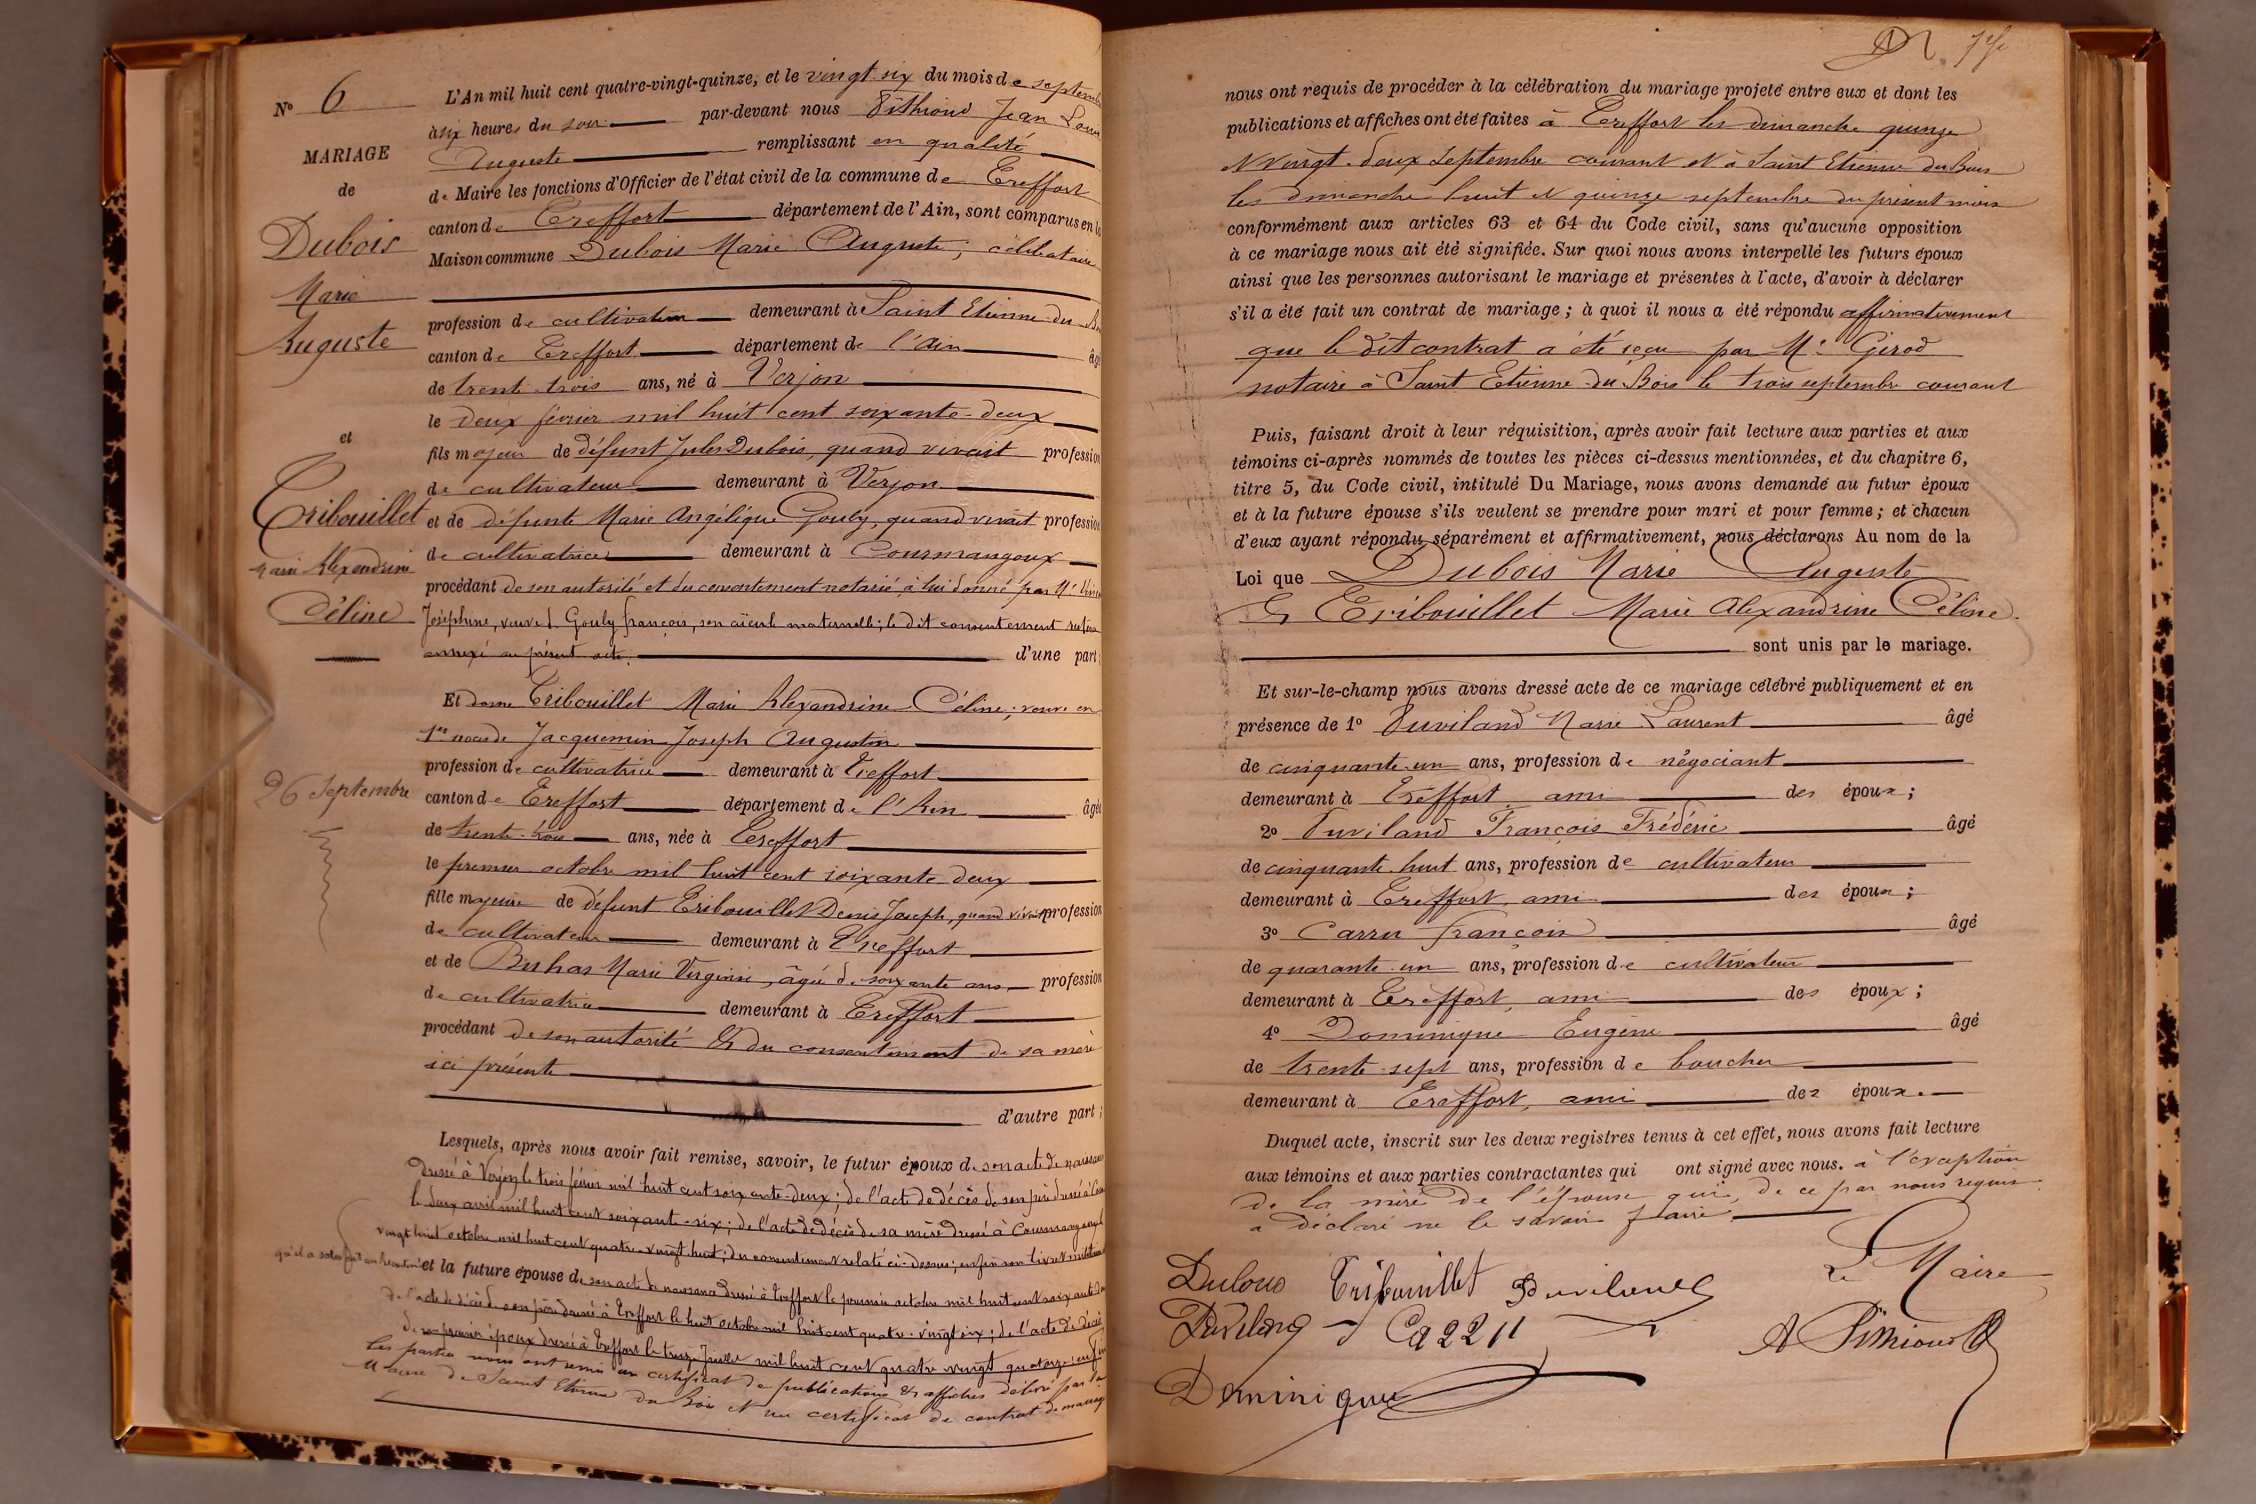 No 6
MARIAGE
de
Dubois
Marie
Auguste
et
Tribouillet
Marie Alexandrine
Céline
26 Septembre
L'An mil huit cent quatre-vingt-quinze, et le vingt six du mois de septembre
à six heures du soir par-devant nous Pithioud Jean Louis
Auguste remplissant en qualité
de Maire les fonctions d'Officier de l'état civil de la commune de Treffort
canton de Treffort département de l'Ain, sont comparus en la
Maison commune Dubois Marie Auguste, célibataire
profession de cultivateur demeurant à Saint Etienne du Bois
canton de Treffort département de l'Ain âgé
de trente trois ans, né à Verjon
le deux février mil huit cent soixante-deux
fils majeur de défunt Jules Dubois, quand vivait profession
de cultivateur demeurant à Verjon
et de défunte Marie Angélique Gouly, quand vivait profession
de cultivatrice demeurant à Courmangoux
procédant de son autorité et du consentement notarié, à lui donné par Me
Joséphine, veuve d. Gouly françois, son aïeule maternelle; le dit consentement
annexé au présent acte. d'une part;
Et dame Tribouillet Marie Alexandrine Céline; veuve en
1res noces de Jacquemin Joseph Augustin
profession de cultivatrice demeurant à Treffort
canton de Treffort département de l'Ain âgée
de trente-deux ans, née à Treffort
le premier octobre mil huit cent soixante deux
fille majeure de défunt Tribouillet Denis Joseph, quand vivait profession
de cultivateur demeurant à Treffort
et de Buhas Marie Virginie, âgée de soixante ans profession
de cultivatrice demeurant à Treffort
procédant de son autorité et du consentement de sa mère
ici présente
d'autre part;
Lesquels, après nous avoir fait remise, savoir, le futur époux de son acte de naissance
dressé à Verjon le trois février mil huit cent soixante-deux; de l'acte de décès de son père dressé à
le deux avril mil huit cent soixante-six; de l'acte de décès de sa mère dressé à Courmangoux le
vingt huit octobre mil huit cent quatre-vingt-huit; du consentement relaté ci-dessus; enfin son livret militaire
et la future épouse de son acte de naissance dressé à Treffort le premier octobre mil huit cent soixante deux
de l'acte de décès de son père dressé à Treffort le huit octobre mil huit cent quatre-vingt six; de l'acte de décès
de son premier époux dressé à Treffort le treize Juillet mil huit cent quatre vingt quatorze; enfin
les parties nous ont remis un certificat de publications et affiches délivré par le
Maire de Saint Etienne du Bois et un certificat de contrat de mariage
nous ont requis de procéder à la célébration du mariage projeté entre eux et dont les
publications et affiches ont été faites à Treffort les dimanche quinze
et vingt-deux septembre courant et à Saint Etienne du Bois
les dimanche huit et quinze septembre du présent mois
conformément aux articles 63 et 64 du Code civil, sans qu'aucune opposition
à ce mariage nous ait été signifiée. Sur quoi nous avons interpellé les futurs époux
ainsi que les personnes autorisant le mariage et présentes à l'acte, d'avoir à déclarer
s'il a été fait un contrat de mariage; à quoi il nous a été répondu affirmativement
que le dit contrat a été reçu par Me Girod
notaire à Saint Etienne du Bois le trois septembre courant
Puis, faisant droit à leur réquisition, après avoir fait lecture aux parties et aux
témoins ci-après nommés de toutes les pièces ci-dessus mentionnées, et du chapitre 6,
titre 5, du Code civil, intitulé Du Mariage, nous avons demandé au futur époux
et à la future épouse s'ils veulent se prendre pour mari et pour femme; et chacun
d'eux ayant répondu séparément et affirmativement, nous déclarons Au nom de la
Loi que Dubois Marie Auguste
Et Tribouillet Marie Alexandrine Céline.
sont unis par le mariage.
Et sur-le-champ nous avons dressé acte de ce mariage célébré publiquement et en
présence de 1o Puviland Marie Laurent âgé
de cinquante-un ans, profession de négociant
demeurant à Treffort ami des époux;
2o Puviland François Frédéric âgé
de cinquante huit ans, profession de cultivateur
demeurant à Treffort, ami des époux;
3o Carru François âgé
de quarante-un ans, profession de cultivateur
demeurant à Treffort, ami des époux;
4o Dominique Eugène âgé
de trente-sept ans, profession de boucher
demeurant à Treffort, ami des époux.
Duquel acte, inscrit sur les deux registres tenus à cet effet, nous avons fait lecture
aux témoins et aux parties contractantes qui ont signé avec nous. à l'exception
de la mère de l'épouse qui, de ce par nous requise
a déclaré ne le savoir faire
Dubois Tribouillet Puviland Le Maire
Puviland Carru A Pithioud
Dominique